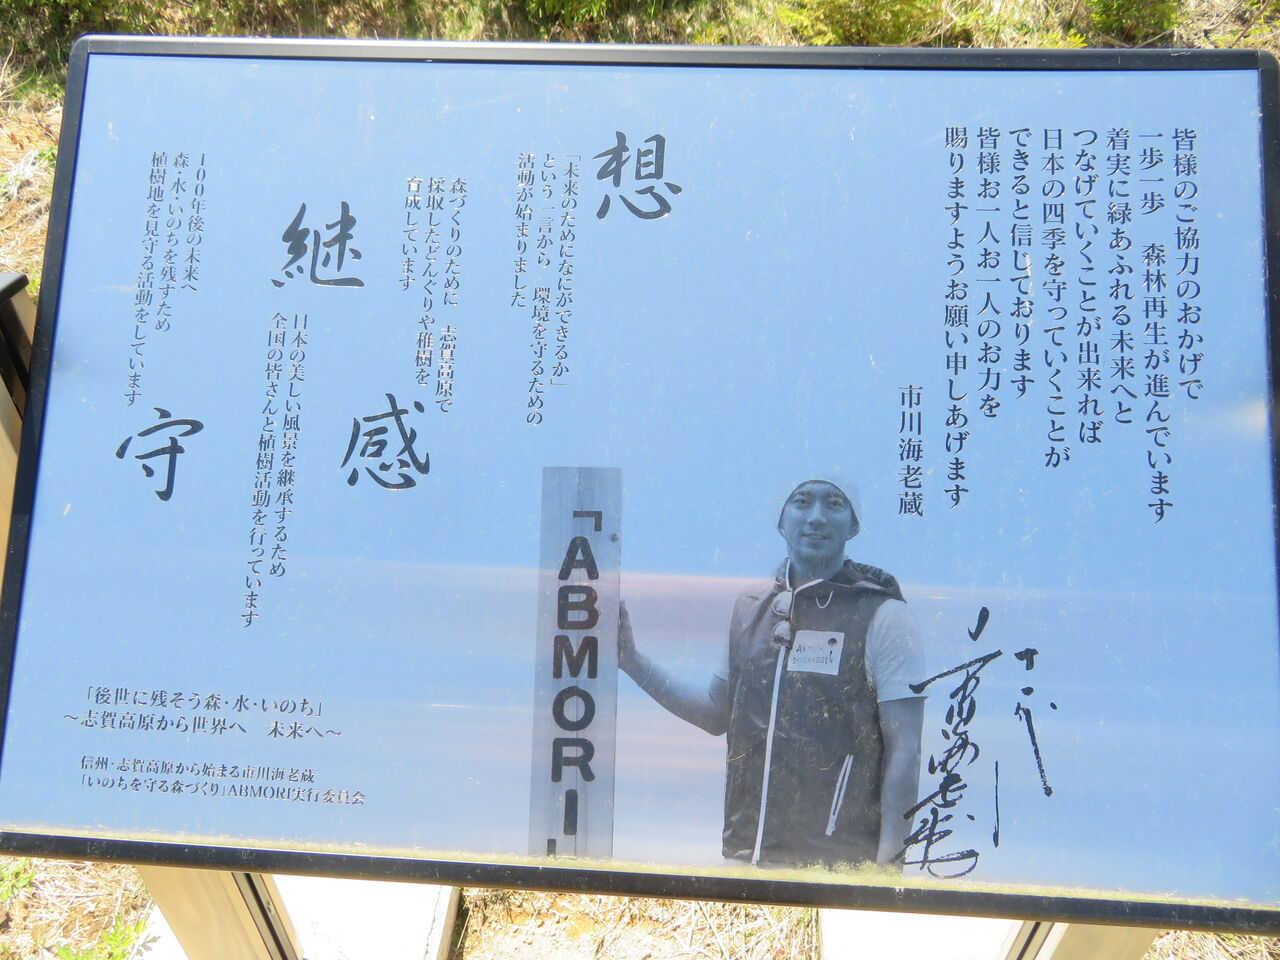 皆様のご協力のおかげで
一歩一歩　森林再生が進んでいます
着実に緑あふれる未来へと
つなげていくことが出来れば
日本の四季を守っていくことが
できると信じております
皆様お一人お一人のお力を
賜りますようお願い申しあげます
市川海老蔵
想
「未来のためになにができるか」
という一言から　環境を守るための
活動が始まりました
感
森づくりのために　志賀高原で
採取したどんぐりや稚樹を
育成しています
継
日本の美しい風景を継承するため
全国の皆さんと植樹活動を行っています
守
100年後の未来へ
森・水・いのちを残すため
植樹地を見守る活動をしています
「ABMORI」
市川海老蔵
「後世に残そう森・水・いのち」
～志賀高原から世界へ　未来へ～
信州・志賀高原から始まる市川海老蔵
「いのちを守る森づくり」ABMORI実行委員会